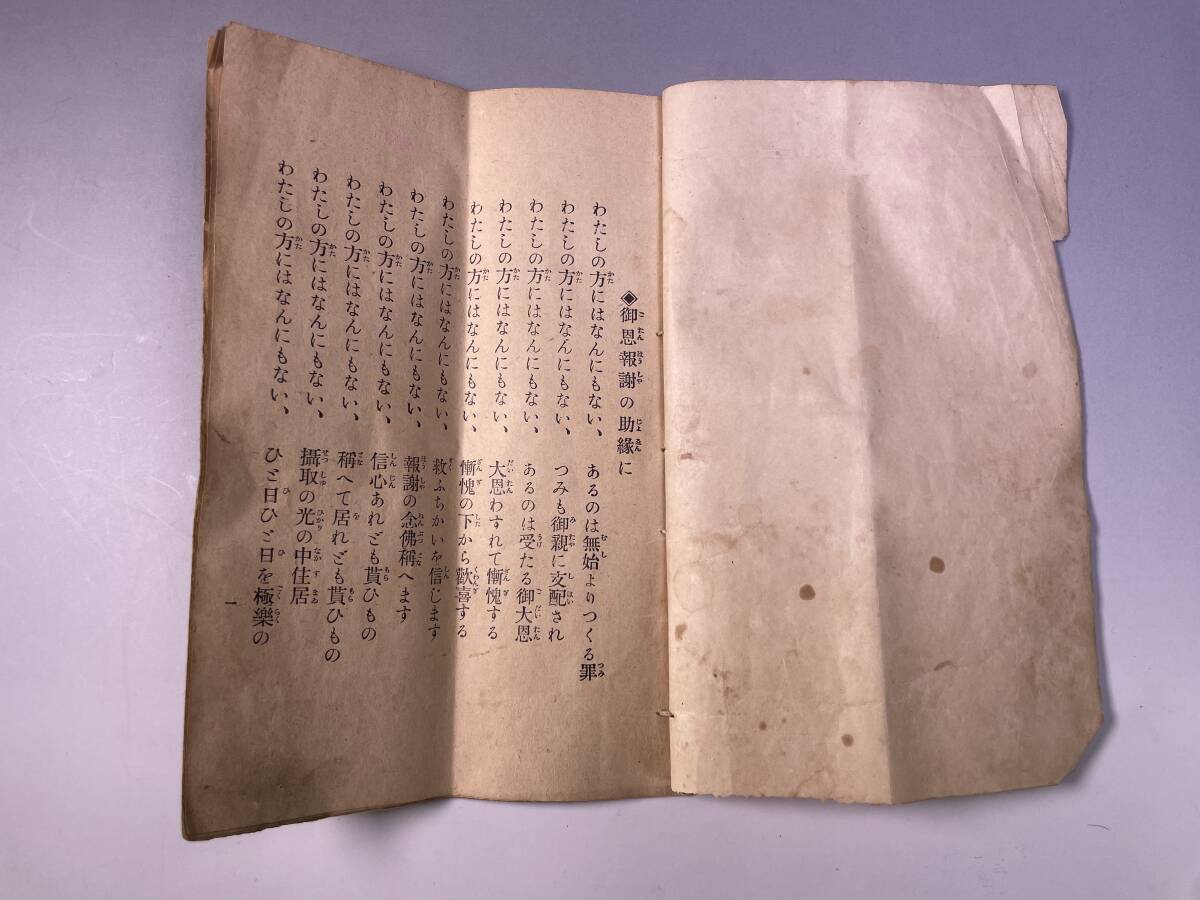 ◈御恩報謝の助緣に
わたしの方にはなんにもない、 あるのは無始よりつくる罪
わたしの方にはなんにもない、 つみも御親に支配され
わたしの方にはなんにもない、 あるのは受たる御大恩
わたしの方にはなんにもない、 大恩わすれて慚愧する
わたしの方にはなんにもない、 慚愧の下から歡喜する
わたしの方にはなんにもない、 救ふちかいを信じます
わたしの方にはなんにもない、 報謝の念佛稱へます
わたしの方にはなんにもない、 信心あれども貰ひもの
わたしの方にはなんにもない、 稱へて居れども貰ひもの
わたしの方にはなんにもない、 攝取の光の中住居
わたしの方にはなんにもない、 ひと日ひと日を極樂の
一